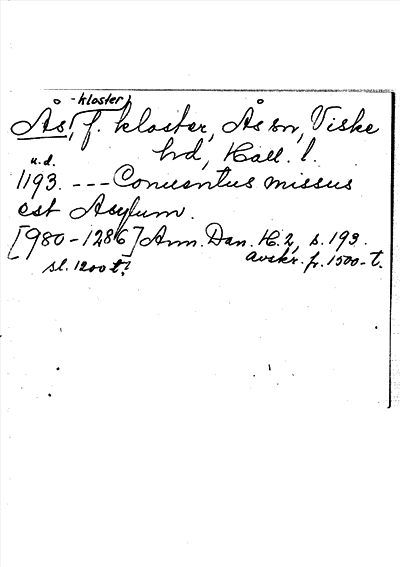 -kloster
Ås, f. kloster, Ås sn, Viske
hd, Hall. l.
u.d.
1193. --- Conuentus missus
est Asylum.
[980-1286] Ann. Dan. H. 2, s. 193.
sl. 1200 t.
avskr. fr. 1500-t.